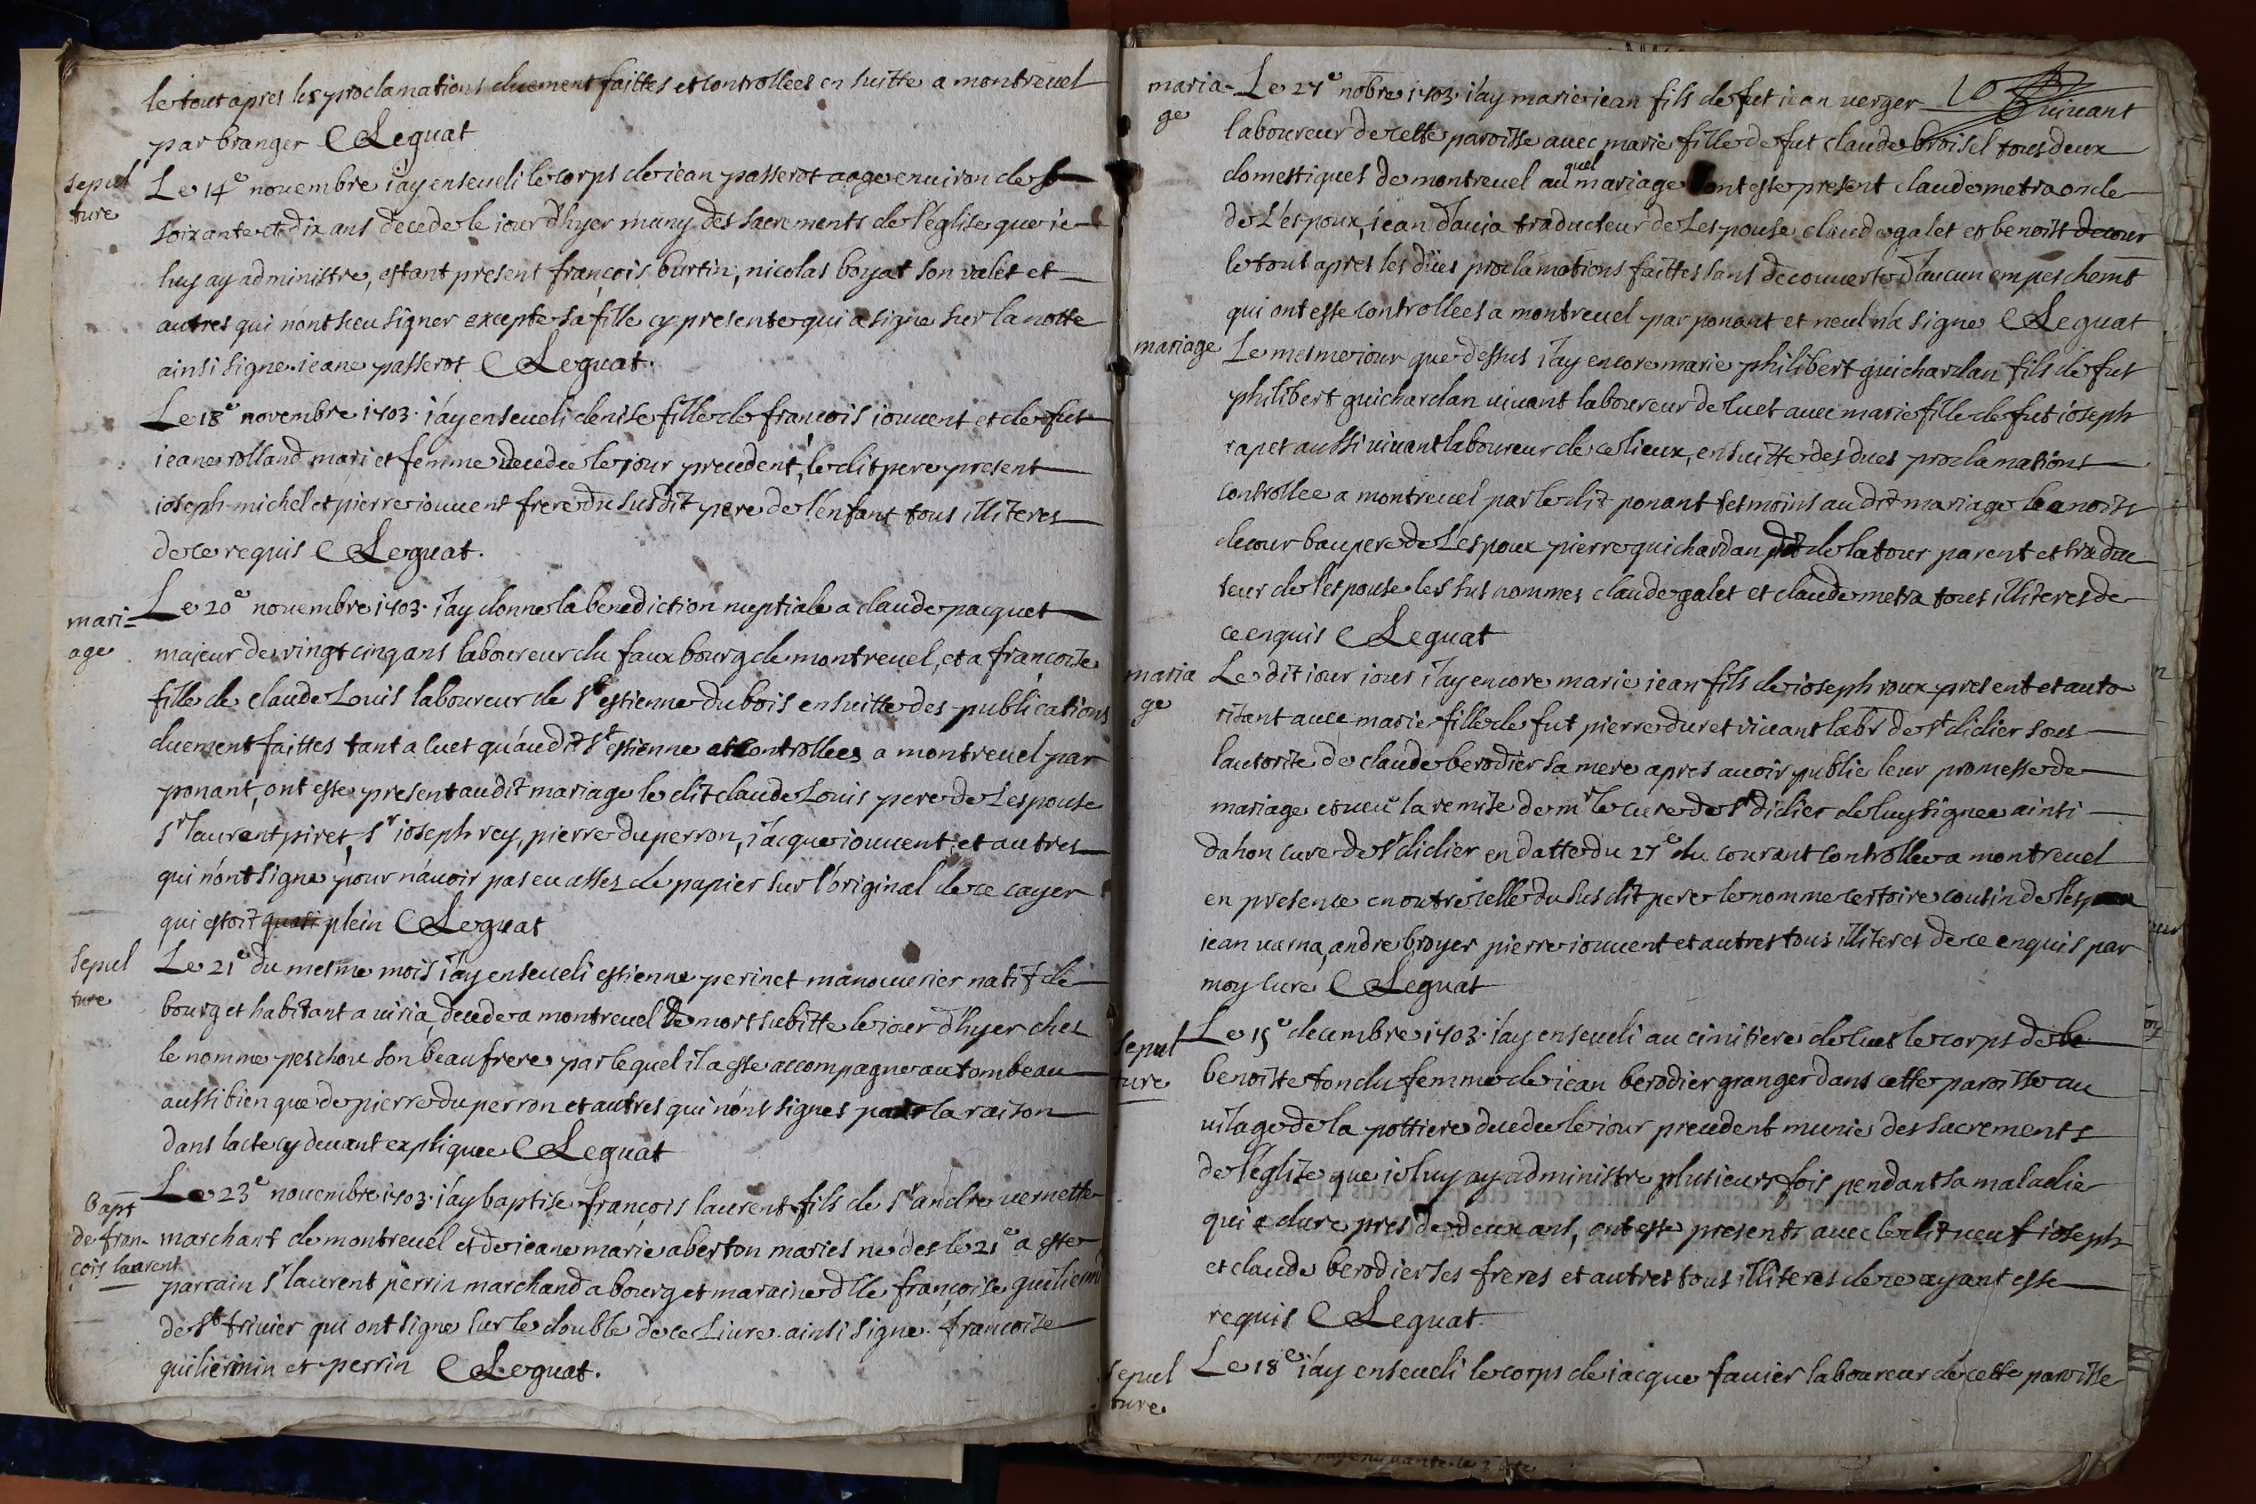 le tout apres les proclamations duement faittes et controllees en suitte a montreuel
par branger Leguat
sepul
ture
Le 14e nouembre i'ay enseueli le corps de iean passerot aage enuiron de so
soixante et dix ans decede le iour d'hyer muny des sacrements de l'eglise que ie
luy ay administre, estant present françois burtin, nicolas boyat son valet et
autres qui n'ont sceu signer excepte sa fille cy presente qui a signe sur la notte
ainsi signe. ieane passerot Leguat.
Le 18e novembre 1703. i'ay enseueli denise fille de francois iouuent et de fut
ieane rolland mari et femme decedee le jour precedent, le dit pere present
ioseph michel et pierre iouuent frere du susdit pere de l'enfant tous illiteres
de ce requis Leguat.
mari-
age
Le 20e nouembre 1703. i'ay donne la benediction nuptiale a claude pacquet
majeur de vingt cinq ans laboureur du faux bourg de montreuel, et a francoise
fille de claude Louis laboureur de st estienne du bois ensuitte des publications
duement faittes tant a luet qu'audit st estienne et controllees a montreuel par
ponant, ont este present audit mariage le dit claude Louis pere de L'espouse
sr laurent piret, sr ioseph rey, pierre duperron, iacque iouuent, et autres
qui n'ont signe pour n'auoir pas eu asses de papier sur l'original de ce cayer
qui estoit quasi plein Leguat
sepul
ture
Le 21e du mesme mois i'ay enseueli estienne perinet manouurier natif de
bourg et habitant a uiria, decede a montreuel de mort subitte le iour d'hyer ches
le nomme peschou son beau frere par lequel il a este accompagne au tombeau
aussi bien que de pierre duperron et autres qui n'ont signes pour la raison
dans lacte cy deuant expliquee Leguat
Bapt
de fran-
cois laurent
Le 23e nouembre 1703. i'ay baptise françois laurent fils de sr andre vernette
marchant de montreuel et de ieane marie aberton maries ne des le 21e a este
parrain sr laurent perrin marchand a bourg et maraine dlle françoise guiliermin
de st triuier qui ont signe sur le double de ce Liure. ainsi signe. francoise
guiliermin et perrin Leguat.
10
maria-
ge
Le 27e nobre 1703. i'ay marie iean fils de fut iean verger uiuant
laboureur de cette paroisse auec marie fille de fut claude broisel tous deux
domestiques de montreuel auquel mariage ont este present claude metra oncle
de L'espoux, iean Jauia traducteur de L'espouse claude galet et benoist decour
le tout apres les dües proclamations faittes sans decouuerte d'aucun empeschemt
qui ont este controllees a montreuel par ponant et neul n'a signe Leguat
mariage
Le mesme iour que dessus i'ay encore marie philibert guichardan fils de fut
philibert guichardan uiuant laboureur de luet auec marie fille de fut ioseph
rapet aussi uiuant laboureur de ce lieux, ensuitte des dues proclamations
controllee a montreuel par le dit ponant tesmoins au dit mariage benoist
decour baupere de L'espoux pierre guichardan dit de la tour parent et traduc
teur de l'espouse les sus nommes claude galet et claude metra tous illiteres de
ce enquis Leguat
maria
ge
Le dit iour iour i'ay encore marie iean fils de ioseph roux present et auto
risant auec marie fille de fut pierre duret viuant labr de st didier sous
l'autorite de claude berodier sa mere apres auoir publie leur promesse de
mariage et ueu la remise de mr le cure de st didier de luy signee ainsi
dahon cure de st didier en datte du 27e du courant controllee a montreuel
en presence en outre celle du susdit pere le nomme certoire cousin de l'espoux
iean varna, andre broyer pierre iouuent et autres tous illiteres de ce enquis par
moy cure Leguat
sepul
ture
Le 15e decembre 1703. i'ay enseueli au cimitiere de luet le corps de be
benoiste fondu femme de iean berodier granger dans cette paroisse au
uilage de la pottiere decedee le iour precedent munie des sacrements
de l'eglise que ie luy ay administre plusieurs fois pendant sa maladie
qui a dure pres de deux ans, ont este presents auec le dit ueuf ioseph
et claude berodier ses freres et autres tous illiteres de ce ayant este
requis Leguat.
sepul
ture
Le 18e i'ay enseueli le corps de iacque fauier laboureur de cette paroisse